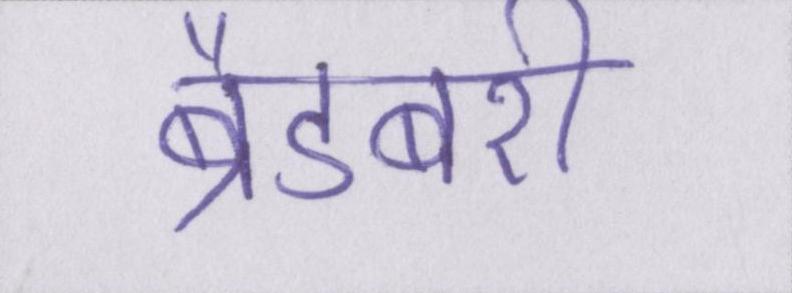 ब्रैडबरी